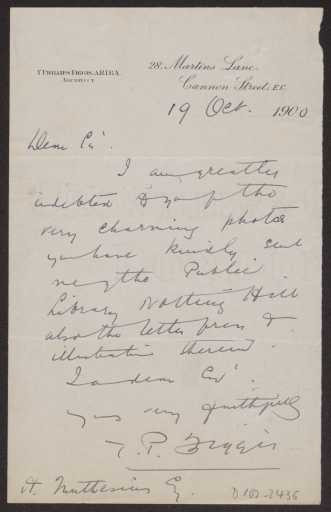 T. Phillips Figgis, A.R.I.B.A.
Architect
28, Martins Lane,
Cannon Street, E.C.
19 Oct. 1900
Dear Sir
I am greatly
indebted to you for the
very charming photos
you have kindly sent
me of the Public
Library Notting Hill
also the letter press &
illustration therein.
I am dear Sir
yours very faithfully
T. P. Figgis
H. Muthesius Esq.
D102-2436